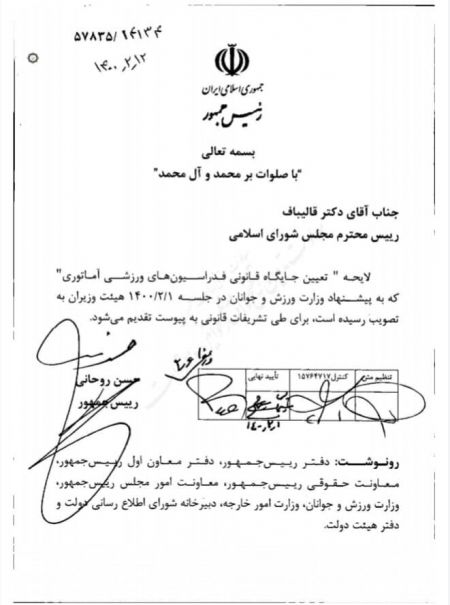 ۵۷۸۳۵/۱۴۱۳۴
۱۴۰۰,۲,۱۲
جمهوری اسلامی ایران
رئیس جمهور
بسمه تعالی
"با صلوات بر محمد و آل محمد"
جناب آقای دکتر قالیباف
رییس محترم مجلس شورای اسلامی
لایحه " تعیین جایگاه قانونی فدراسیون‌های ورزشی آماتوری"
که به پیشنهاد وزارت ورزش و جوانان در جلسه ۱۴۰۰/۲/۱ هیئت وزیران به
تصویب رسیده است، برای طی تشریفات قانونی به پیوست تقدیم می‌شود.
حسن روحانی
رییس جمهور
تنظیم متن کنترل ۱۵۷۶۴۷۱۷ تأیید نهایی
رونوشت: دفتر رییس‌جمهور، دفتر معاون اول رییس‌جمهور،
معاونت حقوقی رییس‌جمهور، معاونت امور مجلس رییس‌جمهور،
وزارت ورزش و جوانان، وزارت امور خارجه، دبیرخانه شورای اطلاع رسانی دولت و
دفتر هیئت دولت.